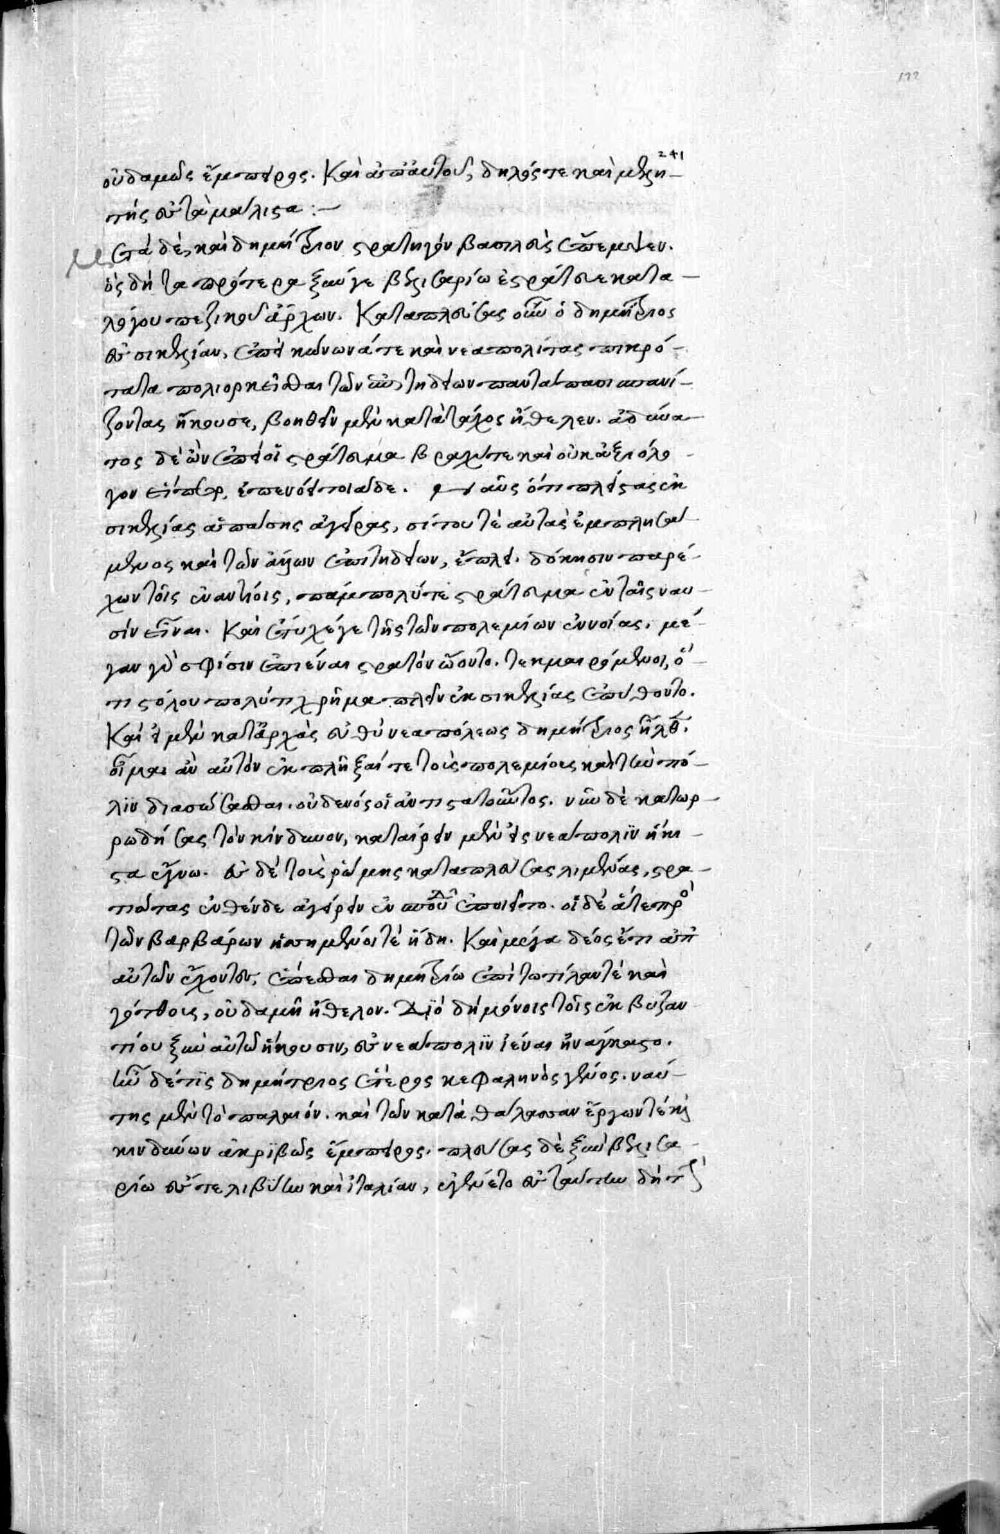 172
241
οὐδαμῶς ἔμπειρος. καὶ ἀπ' αὐτοῦ, δειλός τε καὶ μελλη-
τὴς ἐς τὰ μάλιστα :~
Μετὰ δὲ, καὶ δημήτριον στρατηγὸν βασιλεὺς ἔπεμψεν.
ὃς δὴ τὰ πρότερα ξύν γε βελισαρίω ἐστράτευε κατα-
λόγου πεζικοῦ ἄρχων. Καταπλεύσας οὖν ὁ δημήτριος
ἐς σικελίαν, ἐπεὶ κόνωνά τε καὶ νεαπολίτας πικρό-
τατα πολιορκεῖσθαι τῶν ἐπιτηδείων παντάπασι σπανί-
ζοντας ἤκουσε, βοηθεῖν μὲν κατὰ τάχος ἤθελεν. ἀδύνα-
τος δὲ ὢν ἐπεί οἱ στράτευμα βραχύ τε καὶ οὐκ ἀξιόλο-
γον εἵπετο, ἐπενόει τοιάδε. ναῦς ὅτι πλείστας ἐκ
σικελίας ἁπάσης ἀγείρας, σίτου τὲ αὐτὰς ἐμπλησά-
μενος καὶ τῶν ἄλλων ἐπιτηδείων, ἔπλει. δόκησιν παρέ-
χων τοῖς ἐναντίοις, πάμπολύ τε στράτευμα ἐν ταῖς ναυ-
σὶν εἶναι. Καὶ ἔτυχέ γε τῆς τῶν πολεμίων ἐννοίας. μέ-
γαν γὰρ σφίσιν ἐπιέναι στρατὸν ᾤοντο. τεκμαιρόμενοι, ὅ-
τι στόλου πολύ τι χρῆμα πλεῖν ἐκ σικελίας ἐπύθοντο.
Καὶ εἰ μὲν κατ' ἀρχὰς εὐθὺ νεαπόλεως δημήτριος ἦλθεν.
οἶμαι ἂν αὐτὸν ἐκπλῆξαί τε τοὺς πολεμίους καὶ τὴν πό-
λιν διασώσασθαι. οὐδενός οἱ ἀντιστατοῦντος. νῦν δὲ κατωρ-
ρωδήσας τὸν κίνδυνον, καταίρειν μὲν εἰς νεάπολιν ἥκι-
στα ἔγνω. ἐς δὲ τοὺς ῥώμης καταπλεύσας λιμένας, στρα-
τιώτας ἐνθένδε ἀγείρειν ἐν σπουδῇ ἐποιεῖτο. οἱ δὲ ἅτε πρὸς
τῶν βαρβάρων ἡσσημένοι τὲ ἤδη. Καὶ μέγα δέος ἔτι ἀπ'
αὐτῶν ἔχοντες, ἕπεσθαι δημητρίω ἐπὶ τωτίλαν τὲ καὶ
γότθους, οὐδαμῆ ἤθελον. Διὸ δὴ μόνοις τοῖς ἐκ βυζαν-
τίου ξὺν αὐτῶ ἥκουσιν, ἐς νεάπολιν ἰέναι ἠνάγκαστο.
ἦν δέ τις δημήτριος ἕτερος κεφαληνὸς γένος. ναύ-
της μὲν τὸ παλαιόν. καὶ τῶν κατὰ θάλασσαν ἔργων τὲ καὶ
κινδύνων ἀκριβῶς ἔμπειρος. πλεύσας δὲ ξὺν βελισα-
ρίω ἔς τε λιβύην καὶ ἰταλίαν, ἐγένετο ἐς ταύτην δὴ τὴν